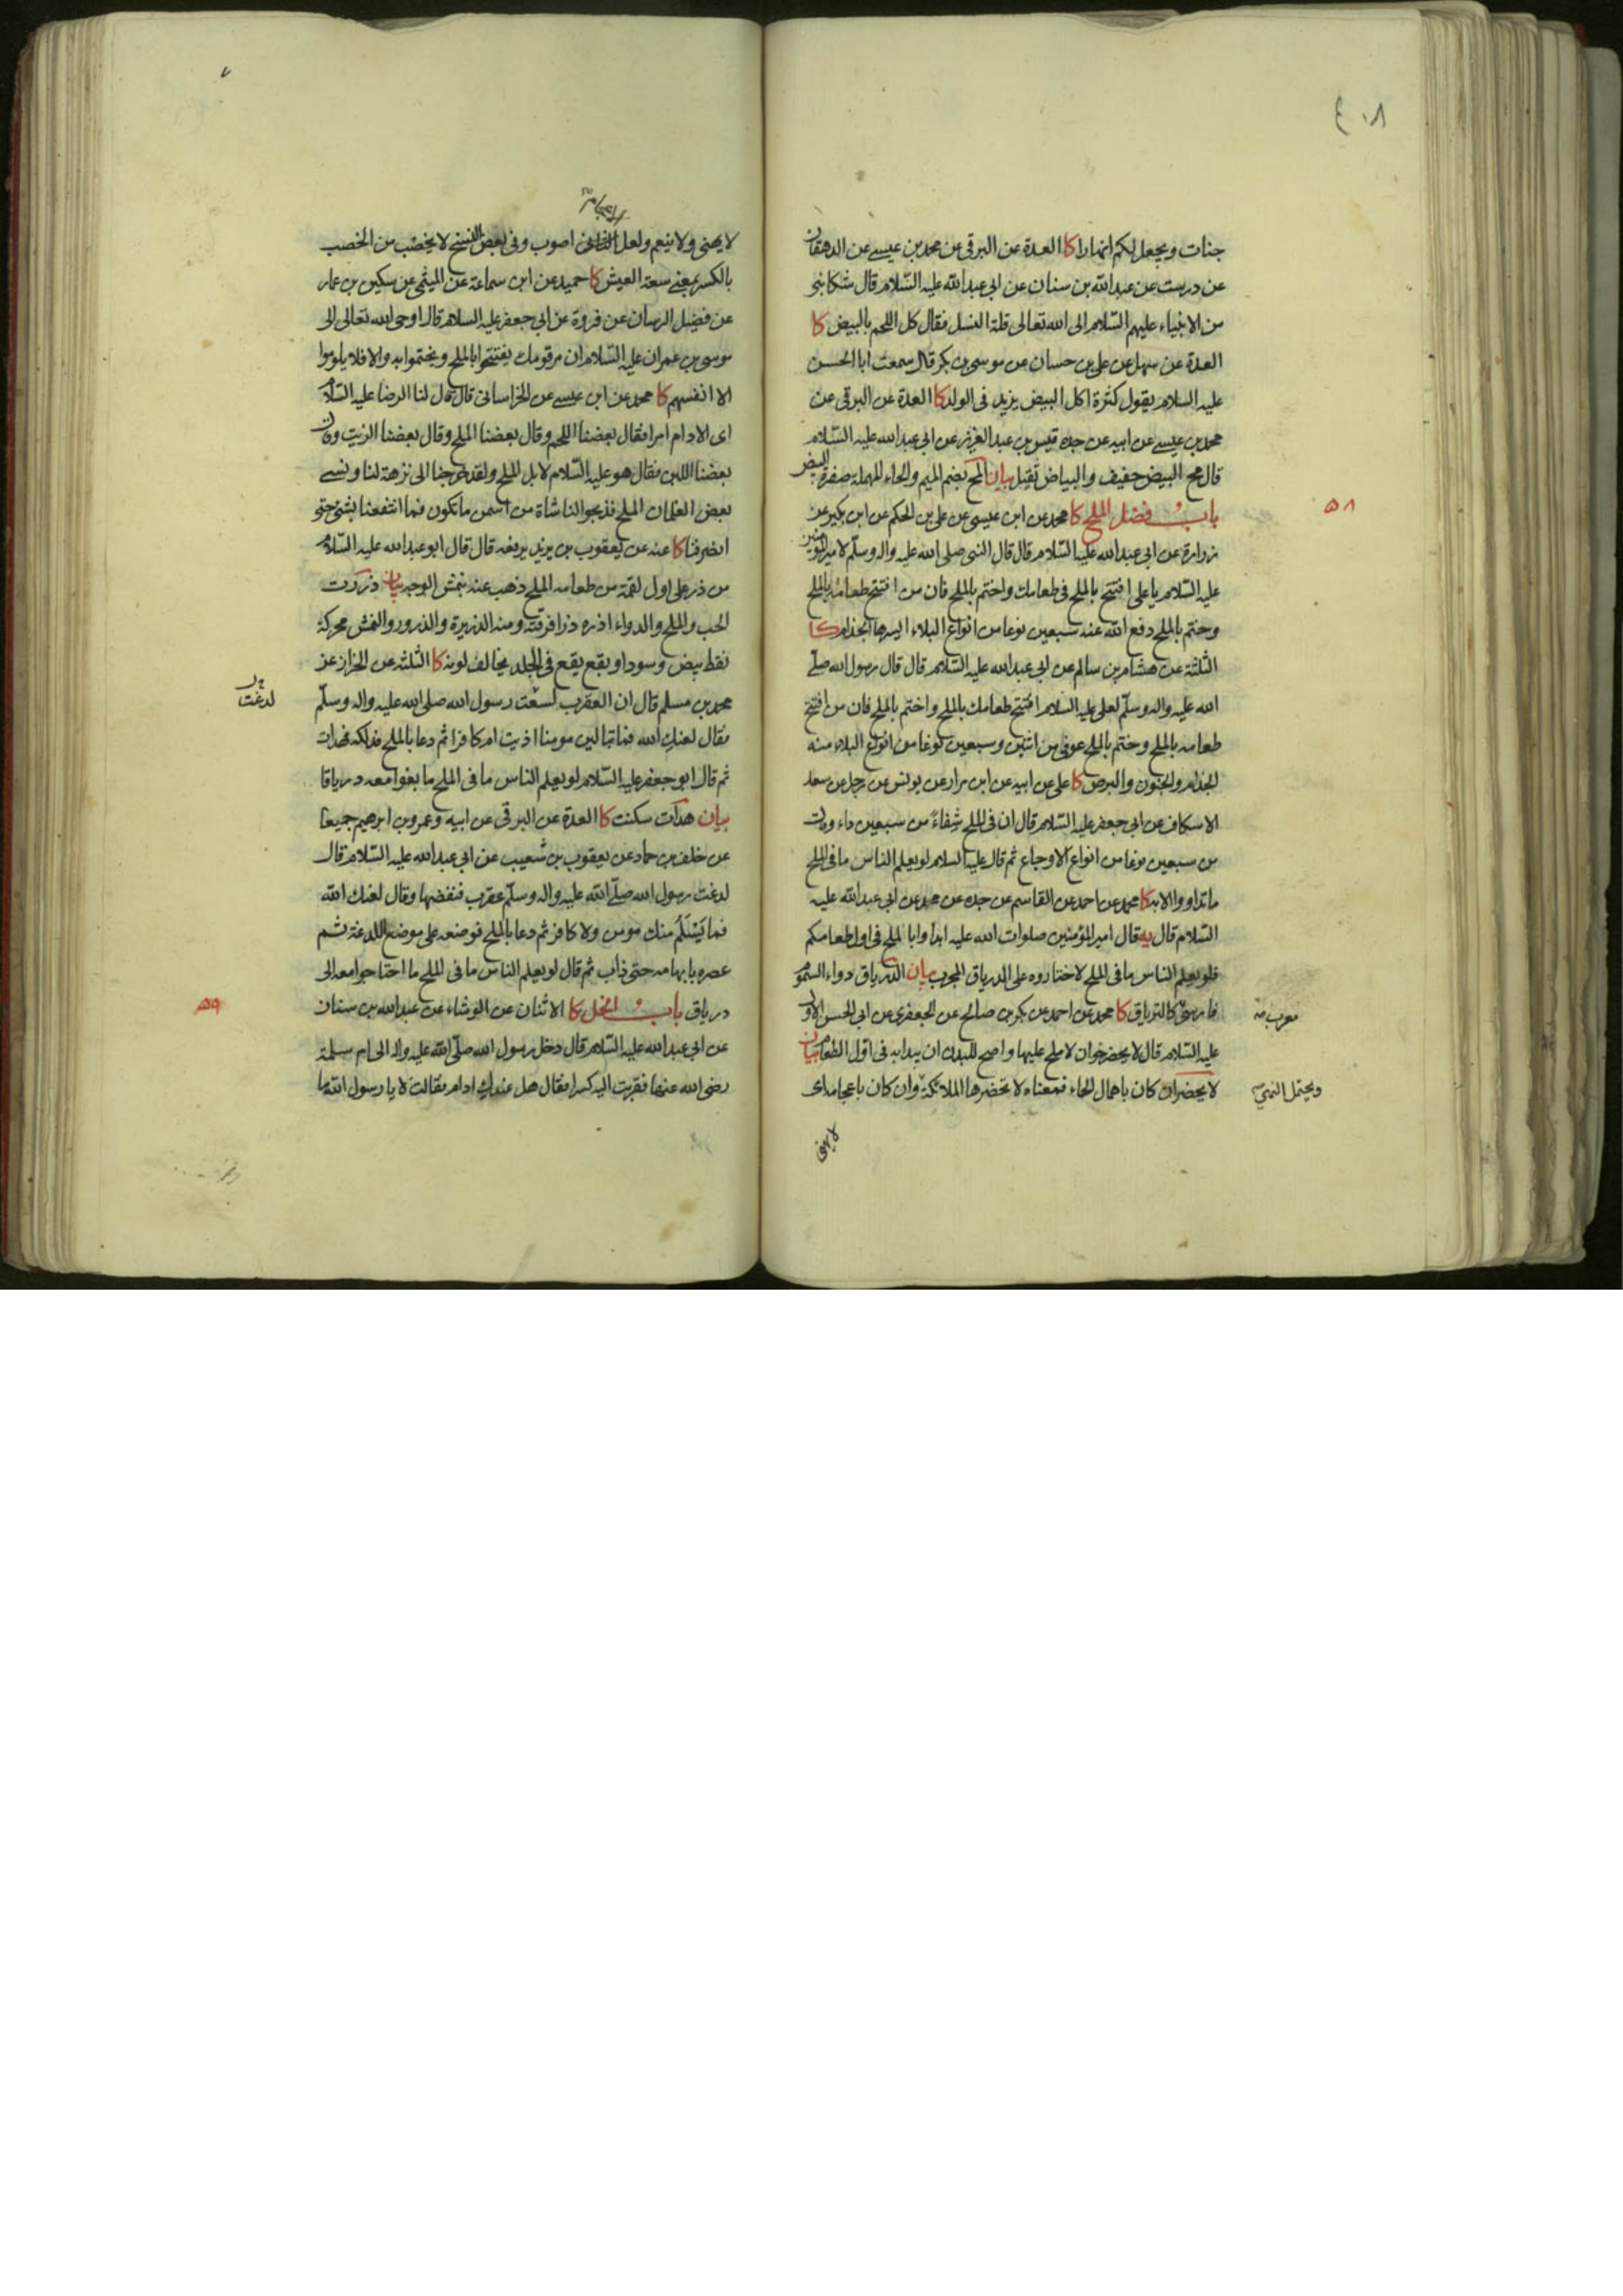 ٤٠٨
جنات ويجعل لكم انهارا كا العدة عن البرقي عن محمد بن عيسى عن الدهقان
عن درست عن عبد الله بن سنان عن ابي عبد الله عليه السلام قال شكا نبي
من الانبياء عليهم السلام الى الله تعالى قلة النسل فقال كل اللحم بالبيض كا
العدة عن سهل عن علي بن حسان عن موسى بن بكر قال سمعت ابا الحسن
عليه السلام يقول كثرة اكل البيض يزيد في الولد كا العدة عن البرقي عن
محمد بن عيسى عن ابيه عن جده قيس بن عبد العزيز عن ابي عبد الله عليه السلام
قال مح البيض خفيف والبياض ثقيل بيان المح بضم الميم والحاء المهملة صفرة البيض
باب فضل الملح كا محمد عن ابن عيسى عن علي بن الحكم عن ابن بكير عن
٥٨
زرارة عن ابي عبد الله عليه السلام قال قال النبي صلى الله عليه واله وسلم لامير المؤمنين
عليه السلام يا علي افتتح بالملح في طعامك واختم بالملح فان من افتتح طعامه بالملح
وختم بالملح دفع الله عنه سبعين نوعا من انواع البلاء ايسرها الجذام كا
الثلثة عن هشام بن سالم عن ابي عبد الله عليه السلام قال قال رسول الله صلى
الله عليه واله وسلم لعلي عليه السلام افتتح طعامك بالملح واختم بالملح فان من افتتح
طعامه بالملح وختم بالملح عوفي من اثنين وسبعين نوعا من انواع البلاء منه
الجذام والجنون والبرص كا علي عن ابيه عن ابن مرار عن يونس عن رجل عن سعد
الاسكاف عن ابي جعفر عليه السلام قال ان في الملح شفاء من سبعين داء وقال
من سبعين نوعا من انواع الاوجاع ثم قال عليه السلام لو يعلم الناس ما في الملح
ما تداووا الا به كا محمد عن احمد عن القاسم عن جده عن محمد عن ابي عبد الله عليه
السلام قال يه قال امير المؤمنين صلوات الله عليه ابداوا بالملح في اول طعامكم
فلو يعلم الناس ما في الملح لاختاروه على الدرياق المجرب بيان الدرياق دواء السموم
فارسي كالترياق كا محمد عن احمد عن بكر بن صالح عن الجعفري عن ابي الحسن الاول
معرب منه
عليه السلام قال لا يحضر خوان لا ملح عليها واصح للبدن ان يبدا به في اول الطعام بيان
لا يحضر ان كان باهمال الحاء فمعناه لا تحضرها الملائكة وان كان باعجامها اى
ويحتمل النهي
لا يهنى
لا يهنى ولا ينعم ولعل اصوب وفي بعض النسخ لا يخصب من الخصب
بالكسر بمعنى سعة العيش كا حميد عن ابن سماعة عن الميثمي عن سكين بن عمار
عن فضيل الرسان عن فروة عن ابي جعفر عليه السلام قال اوحى الله تعالى الى
موسى بن عمران عليه السلام ان مر قومك يفتتحوا بالملح ويختموا به والا فلا يلوموا
الا انفسهم كا محمد عن ابن عيسى عن الخراساني قال قال لنا الرضا عليه السلام
اى الادام امرا فقال بعضنا اللحم وقال بعضنا الملح وقال بعضنا الزيت وقال
بعضنا اللبن فقال هو عليه السلام لا بل الملح ولقد خرجنا الى نزهة لنا ونسي
بعض الغلمان الملح فذبحوا لنا شاة من اسمن ما تكون فما انتفعنا بشئ حتى
انصرفنا كا عنه عن يعقوب بن يزيد يرفعه قال قال ابو عبد الله عليه السلام
من ذر على اول لقمة من طعامه الملح ذهب عنه بنمش الوجه بيان ذررت
الحب والملح والدواء اذره ذرا فرقته ومنه الذريرة والذرور والنمش محركة
نقط بيض وسود او بقع يقع في الجلد يخالف لونه كا الثلثة عن الخراز عن
محمد بن مسلم قال ان العقرب لسعت رسول الله صلى الله عليه واله وسلم
لدغت
فقال لعنك الله فما تبالين مومنا اذيت ام كافرا ثم دعا بالملح فدلكه فهدات
ثم قال ابو جعفر عليه السلام لو يعلم الناس ما في الملح ما بغوا معه درياقا
بيان هدات سكنت كا العدة عن البرقي عن ابيه وعمرو بن ابرهيم جميعا
عن خلف بن حماد عن يعقوب بن شعيب عن ابي عبد الله عليه السلام قال
لدغت رسول الله صلى الله عليه واله وسلم عقرب فنفضها وقال لعنك الله
فما يسلم منك مومن ولا كافر ثم دعا بالملح فوضعه على موضع اللدغة ثم
عصره بابهامه حتى ذاب ثم قال لو يعلم الناس ما في الملح ما احتاجوا معه الى
درياق باب الخل كا الاثنان عن الوشاء عن عبد الله بن سنان
٥٩
عن ابي عبد الله عليه السلام قال دخل رسول الله صلى الله عليه واله الى ام سلمة
رضي الله عنها فقربت اليه كسرا فقال هل عندك ادام فقالت لا يا رسول الله ما